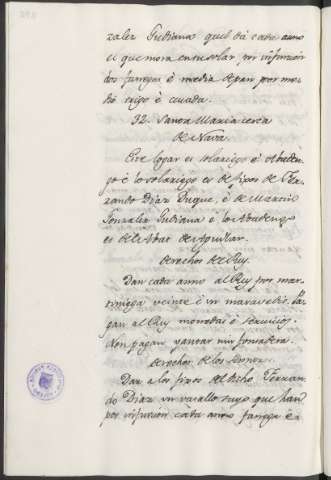 zalez Gudiana quel dá cada anno
el que mora en tu solar un infurcion
dos fanegas é media de pan por me
dio trigo é cevada.
32. Santa Maria cerca
de Nava.
Este logar es solariego é abaden
go é lo solariego es de fijos de Fer
rando Diaz Duque, é de Martin
Gonzalez Gudiana é lo abadengo
es del Abat de Aguilar.
derechos del Rey.
Dan cada anno al Rey por mar
tiniega veinte é un maravedis. Pa
gan al Rey monedas é servicios.
Non pagan yantar nin fonsadera.
derechos de los
Dan a los fijos del dicho Ferran
do Diaz un vasallo suyo que han
por infurcion cada anno fanega é